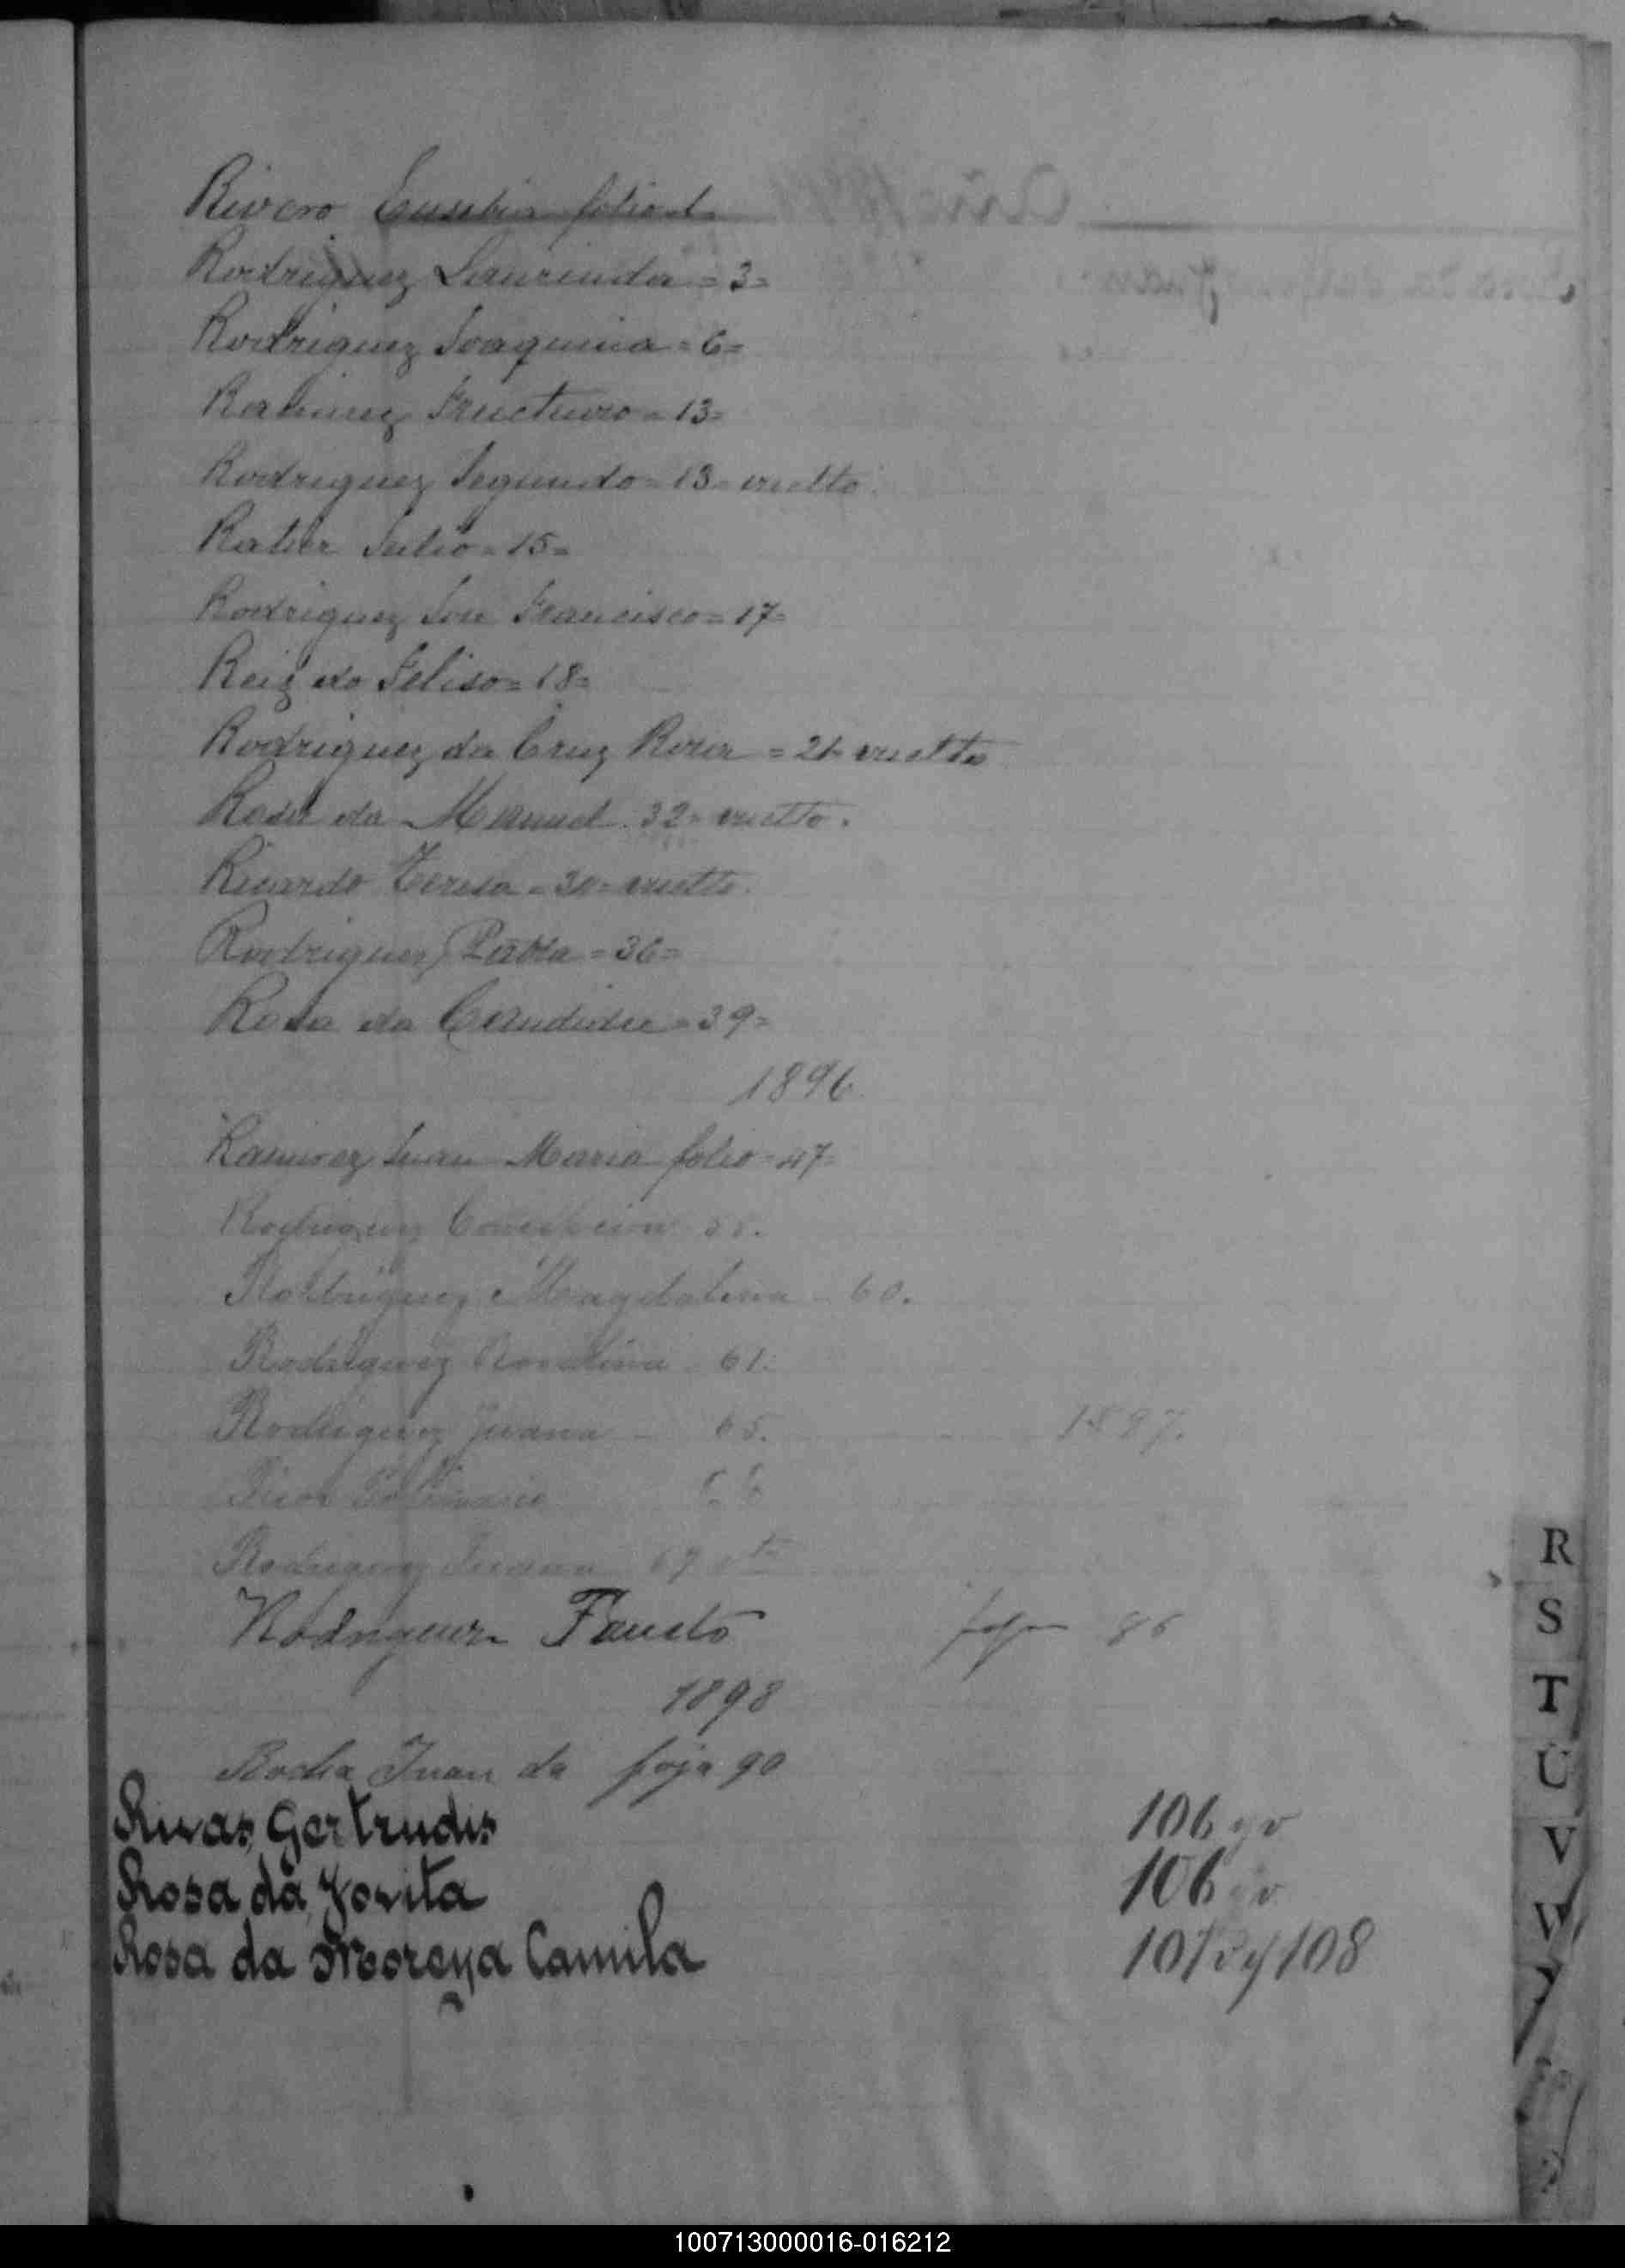 Rivero Eusebia folio 1
Rodriguez Laurinda = 3=
Rodriguez Joaquina = 6=
Ramirez Fructuoso = 13=
Rodriguez Segundo = 13= vuelto
Julio = 15=
Rodriguez José Francisco = 17=
Reiz do Feliso = 18=
Rodriguez da Cruz Rosa = 21= vuelto
Rosa da Manuel 32= vuelto.
Ricardo Teresa = 30= vuelto
Rodriguez Pabla = 36=
Rosa da Candida = 39=
1896
Ramirez Juan Maria folio = 47=
Rodriguez
Rodriguez Magdalena - 60.
Rodriguez 61.
Rodriguez Juana - 65. 1897.
66
Rodriguez Juana 67 vto
Rodriguez Fausto foja 86
1898
Rocha Juan da foja 90
Rivas, Gertrudis 106 y v
Rosa da Jovita 106 y v
Rosa da Moreyra Camila 107 v y 108
R
S
T
U
V
W
100713000016-016212